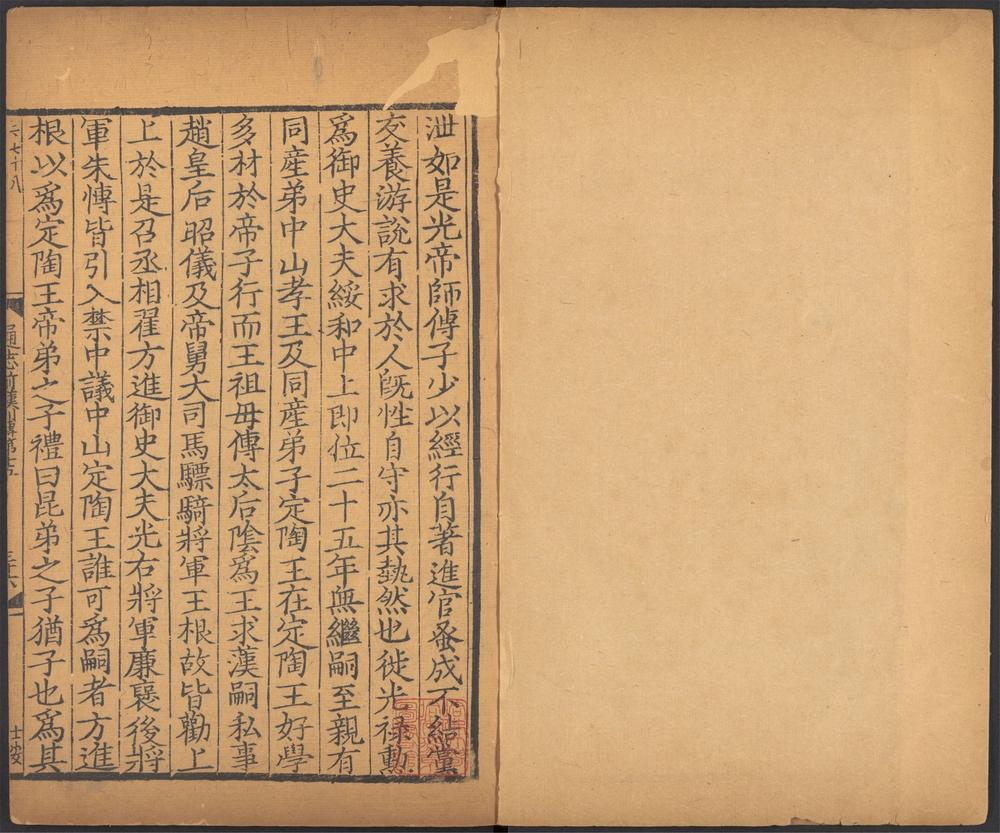 泄如是光帝師傅子少以經行自著進官蚤成不結黨
友養游說有求於人旣性自守亦其埶然也徙光祿勳
爲御史大夫綏和中上即位二十五年無繼嗣至親有
同産弟中山孝王及同産弟子定陶王在定陶王好學
多材於帝子行而王祖母傅太后陰爲王求漢嗣私事
趙皇后昭儀及帝舅大司馬驃騎將軍王根故皆勸上
上於是召丞相翟方進御史大夫光右將軍廉襃後將
軍朱愽皆引入禁中議中山定陶王誰可爲嗣者方進
根以爲定陶王帝弟之子禮曰昆弟之子猶子也爲其
六七十八
通志前漢傳第五
三十六